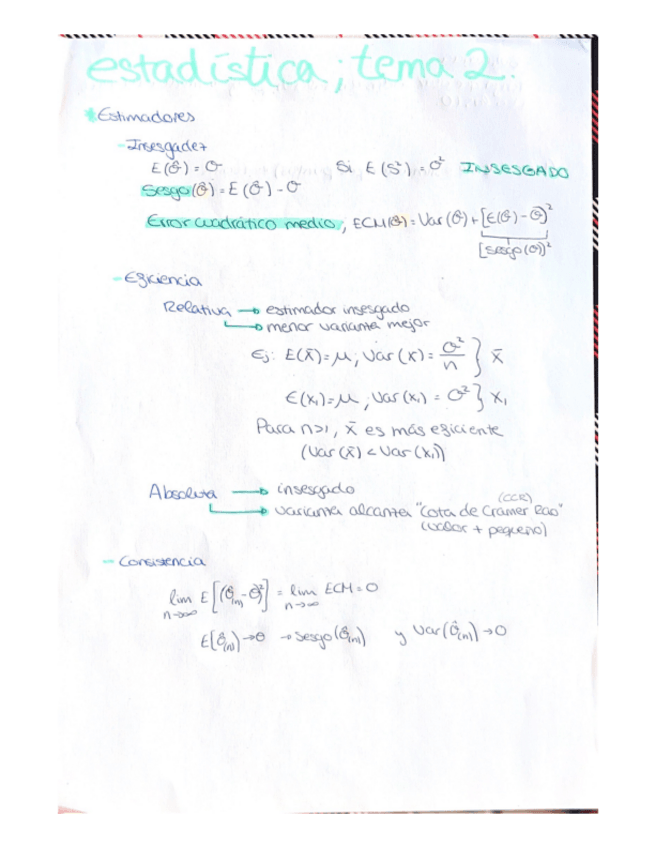 estadística; tema 2.
*Estimadores
- Insesgadez
E(θ̂) = θ Si E(S²) = σ² INSESGADO
Sesgo(θ̂) = E(θ̂) - θ
Error cuadrático medio; ECM(θ̂) = Var(θ̂) + [E(θ̂) - θ]²
[sesgo(θ̂)]²
- Eficiencia
Relativa → estimador insesgado
→ menor varianza mejor
Ej: E(x̄) = μ; Var(x̄) = σ²/n } x̄
E(x₁) = μ, Var(x₁) = σ² } x₁
Para n>1, x̄ es más eficiente
(Var(x̄) < Var(x₁))
Absoluta → insesgado
(CCR)
→ varianza alcanza "Cota de Cramer Rao"
(valor + pequeño)
- Consistencia
lim n→∞ E[(θ̂(n) - θ)²] = lim n→∞ ECM = 0
E[θ̂(n)] → θ → Sesgo(θ̂(n)) y Var(θ̂(n)) → 0